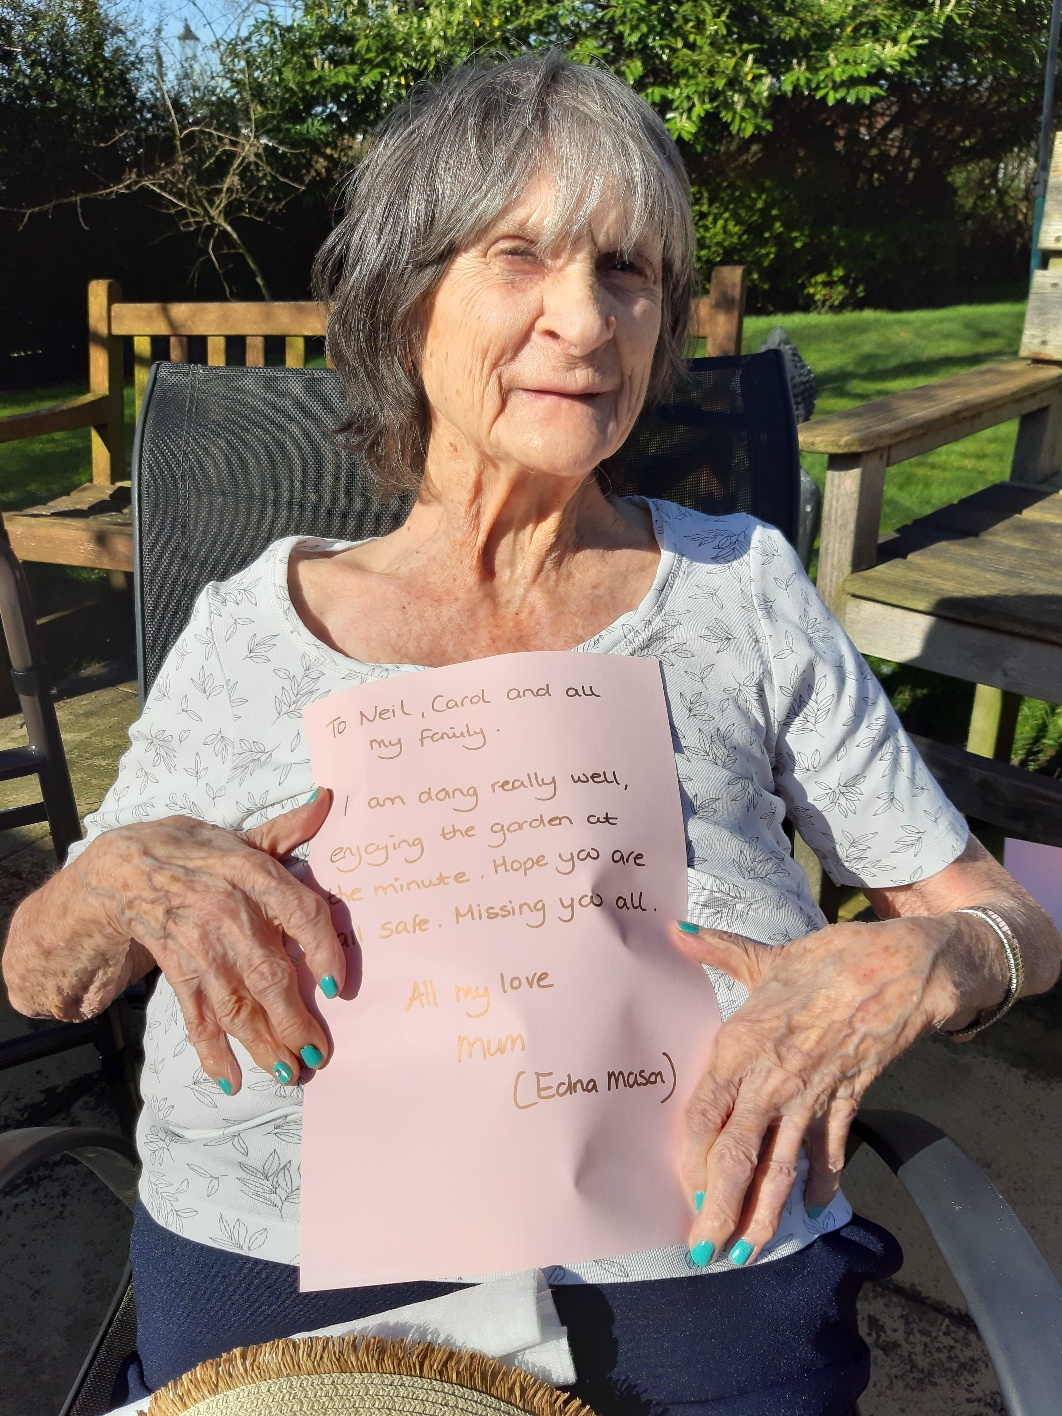 To Neil, Carol and all
my family.
I am doing really well,
enjoying the garden at
the minute. Hope you are
all safe. Missing you all.
All my love
Mum
(Edna Mason)